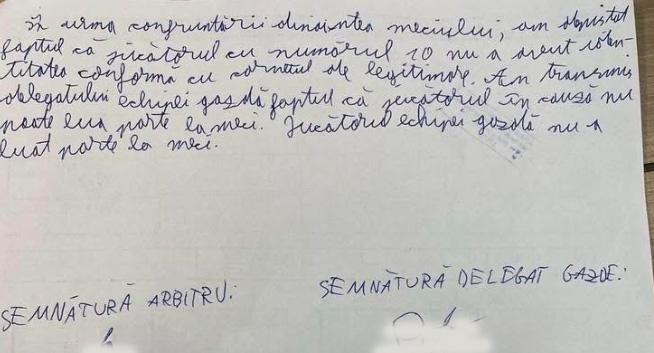 În urma confruntării dinaintea meciului, am depistat
faptul că jucătorul cu numărul 10 nu a avut iden-
titatea conformă cu carnetul de legitimare. Am transmis
delegatului echipei gazdă faptul că jucătorul în cauză nu
poate lua parte la meci. Jucătorul echipei gazdă nu a
luat parte la meci.
SEMNĂTURĂ ARBITRU:
SEMNĂTURĂ DELEGAT GAZDE: